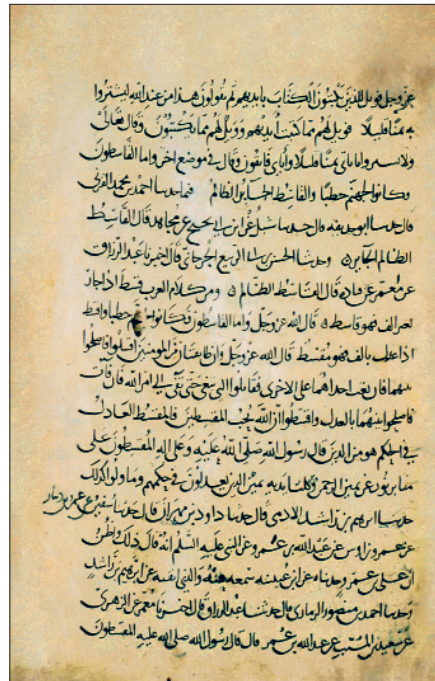 عز وجل فويل للذين يكتبون الكتاب بايديهم ثم يقولون هذا من عند الله ليشتروا
به ثمنا قليلا فويل لهم مما كتبت ايديهم وويل لهم مما يكتبون وقال تعالى
ولا تشتروا باياتي ثمنا قليلا واياي فاتقون وقال في موضع اخر واما القاسطون
فكانوا لجهنم حطبا والقاسط الجاير الظالم فما حدثنا احمد بن محمد
قال حدثنا ابو حذيفه قال حدثنا شبل عن ابن ابي نجيح عن مجاهد قال القاسط
الظالم الجاير وحدثنا الحسن بن ابي الربيع الجرجاني قال اخبرنا عبد الرزاق
عن معمر عن قتاده قال القاسط الظالم ومن كلام العرب قسط اذا جار
بغير الف فهو قاسط قال الله عز وجل واما القاسطون فكانوا لجهنم حطبا واقسط
اذا عدل بالف فهو مقسط قال الله عز وجل وان طايفتان من المومنين اقتتلوا فاصلحوا
بينهما فان بغت احداهما على الاخرى فقاتلوا التي تبغي حتى تفي الى امر الله فان فات
فاصلحوا بينهما بالعدل واقسطوا ان الله يحب المقسطين فالمقسط العادل
في الحكم هو من الذين قال رسول الله صلى الله عليه وعلى اله المقسطون على
منابر من نور عن يمين الرحمن وكلتا يديه يمين الذين يعدلون في حكمهم وما ولوا كذلك
حدثنا ابرهيم بن راشد الادمي قال حدثنا داود بن مهران قال حدثنا سفين عن عمرو بن دينار
عن عمرو بن اوس عن عبد الله بن عمرو عن النبي عليه السلم انه قال ذلك
وحدثنا احمد بن منصور الرمادي قال حدثنا عبد الرزاق قال اخبرنا معمر عن الزهري
عن سعيد بن المسيب عن عبد الله بن عمر قال قال رسول الله صلى الله عليه المقسطون